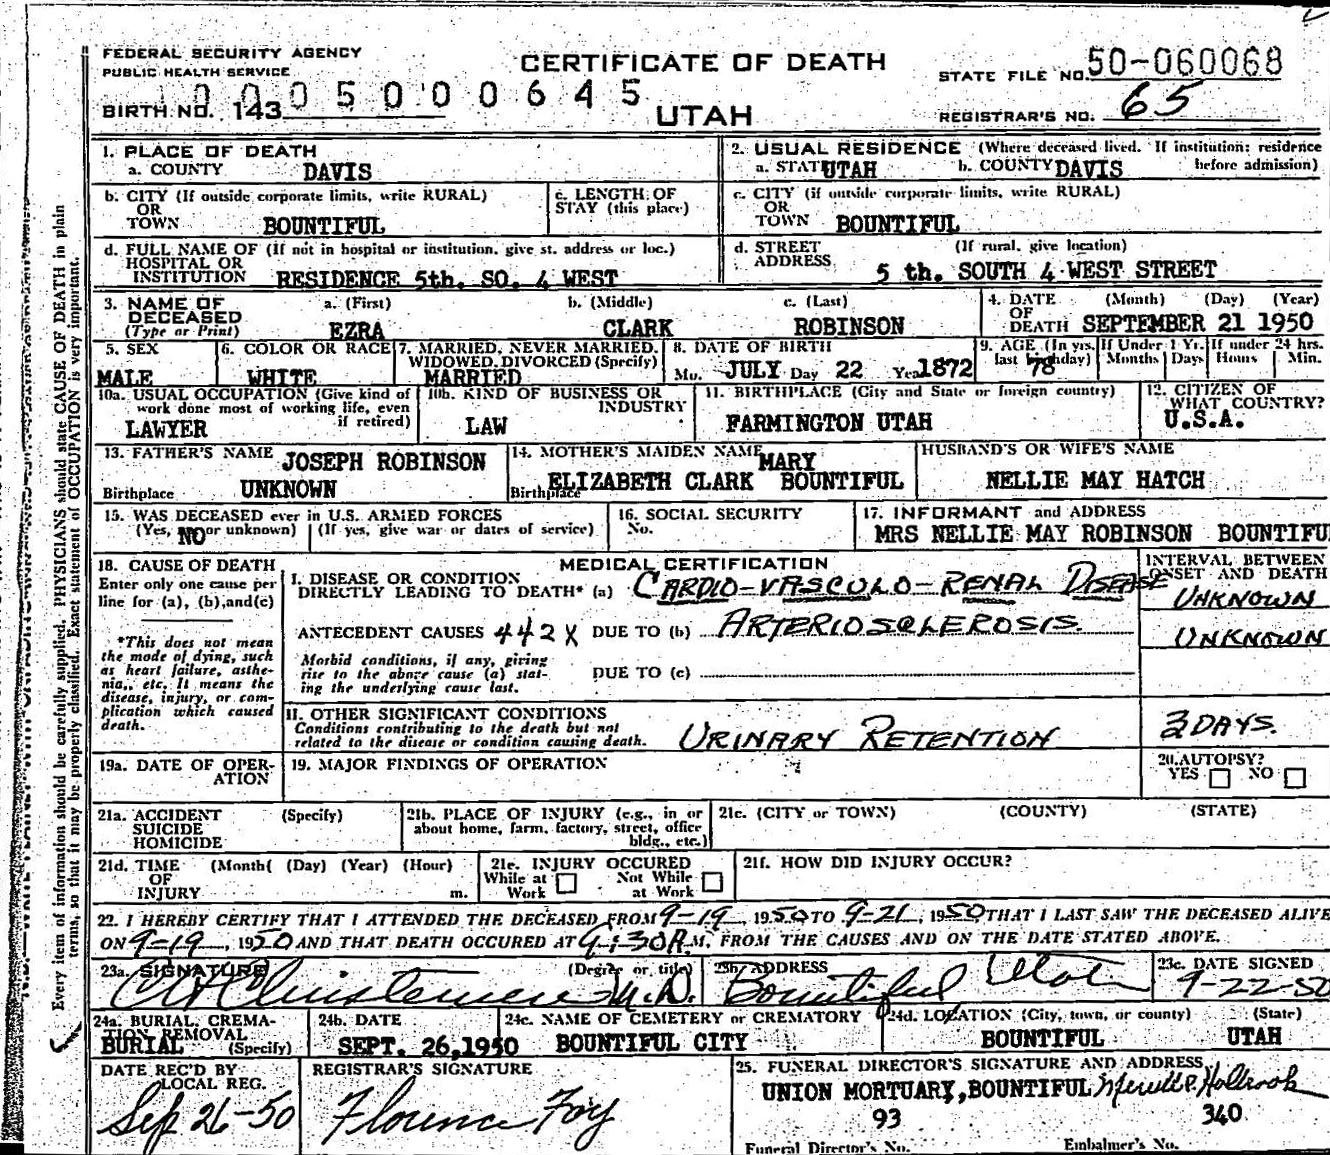 FEDERAL SECURITY AGENCY
PUBLIC HEALTH SERVICE
CERTIFICATE OF DEATH
STATE FILE NO. 50-060068
BIRTH NO. 143
UTAH
REGISTRAR'S NO. 65
1. PLACE OF DEATH
a. COUNTY DAVIS
2. USUAL RESIDENCE (Where deceased lived. If institution: residence before admission)
a. STATE UTAH b. COUNTY DAVIS
b. CITY (If outside corporate limits, write RURAL)
OR
TOWN BOUNTIFUL
c. LENGTH OF
STAY (this place)
c. CITY (if outside corporate limits, write RURAL)
OR
TOWN BOUNTIFUL
d. FULL NAME OF (If not in hospital or institution, give st. address or loc.)
HOSPITAL OR
INSTITUTION RESIDENCE 5th. SO. 4 WEST
d. STREET (If rural, give location)
ADDRESS 5 th. SOUTH 4 WEST STREET
3. NAME OF DECEASED (Type or Print)
a. (First) EZRA
b. (Middle) CLARK
c. (Last) ROBINSON
4. DATE OF DEATH (Month) (Day) (Year)
SEPTEMBER 21 1950
5. SEX
MALE
6. COLOR OR RACE
WHITE
7. MARRIED, NEVER MARRIED, WIDOWED, DIVORCED (Specify)
MARRIED
8. DATE OF BIRTH
Mo. JULY Day 22 Year 1872
9. AGE (In yrs. last birthday) 78
If Under 1 Yr. Months Days
If under 24 hrs. Hours Min.
10a. USUAL OCCUPATION (Give kind of work done most of working life, even if retired)
LAWYER
10b. KIND OF BUSINESS OR INDUSTRY
LAW
11. BIRTHPLACE (City and State or foreign country)
FARMINGTON UTAH
12. CITIZEN OF WHAT COUNTRY?
U.S.A.
13. FATHER'S NAME JOSEPH ROBINSON
Birthplace UNKNOWN
14. MOTHER'S MAIDEN NAME MARY
ELIZABETH CLARK BOUNTIFUL
Birthplace
HUSBAND'S OR WIFE'S NAME
NELLIE MAY HATCH
15. WAS DECEASED ever in U.S. ARMED FORCES
(Yes, NO or unknown) (If yes, give war or dates of service)
16. SOCIAL SECURITY
No.
17. INFORMANT and ADDRESS
MRS NELLIE MAY ROBINSON BOUNTIFU
18. CAUSE OF DEATH
Enter only one cause per
line for (a), (b), and (c)
*This does not mean
the mode of dying, such
as heart failure, asthe-
nia, etc. It means the
disease, injury, or com-
plication which caused
death.
MEDICAL CERTIFICATION
INTERVAL BETWEEN
ONSET AND DEATH
I. DISEASE OR CONDITION
DIRECTLY LEADING TO DEATH* (a) CARDIO-VASCULO-RENAL DISEASE
UNKNOWN
ANTECEDENT CAUSES 442X DUE TO (b) ARTERIOSCLEROSIS.
UNKNOWN
Morbid conditions, if any, giving
rise to the above cause (a) stat-
ing the underlying cause last.
DUE TO (c)
II. OTHER SIGNIFICANT CONDITIONS
Conditions contributing to the death but not
related to the disease or condition causing death.
URINARY RETENTION
3 DAYS.
19a. DATE OF OPER-
ATION
19. MAJOR FINDINGS OF OPERATION
20. AUTOPSY?
YES NO
21a. ACCIDENT (Specify)
SUICIDE
HOMICIDE
21b. PLACE OF INJURY (e.g., in or
about home, farm, factory, street, office
bldg., etc.)
21c. (CITY or TOWN) (COUNTY) (STATE)
21d. TIME (Month( (Day) (Year) (Hour)
OF
INJURY m.
21e. INJURY OCCURED
While at Work Not While at Work
21f. HOW DID INJURY OCCUR?
22. I HEREBY CERTIFY THAT I ATTENDED THE DECEASED FROM 9-19, 1950 TO 9-21, 1950 THAT I LAST SAW THE DECEASED ALIVE
ON 9-19, 1950 AND THAT DEATH OCCURED AT 9:30 A.M. FROM THE CAUSES AND ON THE DATE STATED ABOVE.
23a. SIGNATURE (Degree or title)
Christensen M.D.
23b. ADDRESS
Bountiful Utah
23c. DATE SIGNED
9-22-50
24a. BURIAL, CREMA-
TION REMOVAL
BURIAL (Specify)
24b. DATE
SEPT. 26, 1950
24c. NAME OF CEMETERY or CREMATORY
BOUNTIFUL CITY
24d. LOCATION (City, town, or county) (State)
BOUNTIFUL UTAH
DATE REC'D BY
LOCAL REG.
Sep 26-50
REGISTRAR'S SIGNATURE
Florence Foy
25. FUNERAL DIRECTOR'S SIGNATURE AND ADDRESS
UNION MORTUARY, BOUNTIFUL Merrill P. Holbrook
93 340
Funeral Director's No. Embalmer's No.
1 0 0 0 5 0 0 0 0 6 4 5
Every item of information should be carefully supplied. PHYSICIANS should state CAUSE OF DEATH in plain
terms, so that it may be properly classified. Exact statement of OCCUPATION is very important.